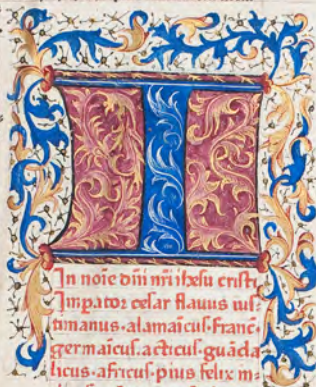 I
In noīe dn̄i nr̄i ihesu cristi
Imꝑator cesar flauus ius
tinianus·alamāicus·Franc̄·
germāicus·acticus·guāda
licus·africus·pius felix in